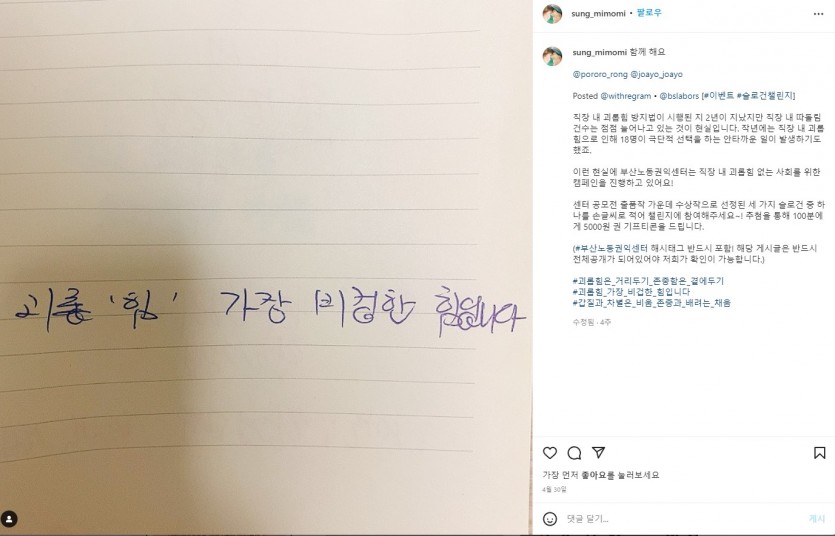 괴롭 '힘' 가장 비겁한 힘입니다
sung_mimomi • 팔로우
sung_mimomi 함께 해요
@pororo_rong @joayo_joayo
Posted @withregram • @bslabors [#이벤트 #슬로건챌린지]
직장 내 괴롭힘 방지법이 시행된 지 2년이 지났지만 직장 내 따돌림
건수는 점점 늘어나고 있는 것이 현실입니다. 작년에는 직장 내 괴롭
힘으로 인해 18명이 극단적 선택을 하는 안타까운 일이 발생하기도
했죠.
이런 현실에 부산노동권익센터는 직장 내 괴롭힘 없는 사회를 위한
캠페인을 진행하고 있어요!
센터 공모전 출품작 가운데 수상작으로 선정된 세 가지 슬로건 중 하
나를 손글씨로 적어 챌린지에 참여해주세요~! 추첨을 통해 100분에
게 5000원 권 기프티콘을 드립니다.
(#부산노동권익센터 해시태그 반드시 포함! 해당 게시글은 반드시
전체공개가 되어있어야 저희가 확인이 가능합니다.)
#괴롭힘은_거리두기_존중함은_곁에두기
#괴롭힘_가장_비겁한_힘입니다
#갑질과_차별은_비움_존중과_배려는_채움
수정됨 · 4주
가장 먼저 좋아요를 눌러보세요
4월 30일
댓글 달기...
게시